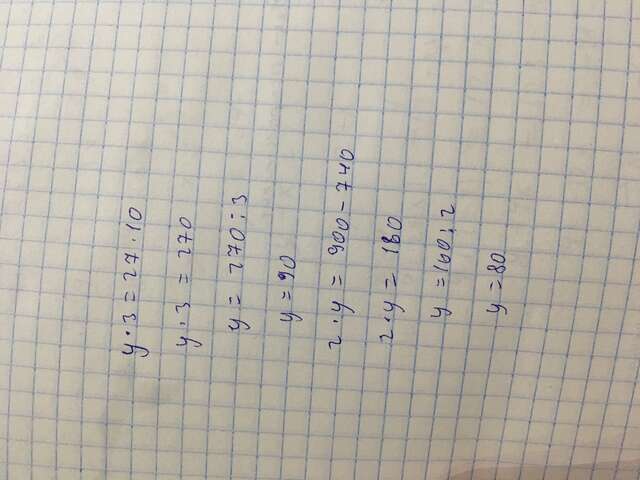 y · 3 = 27 · 10
y · 3 = 270
y = 270 : 3
y = 90
2 · y = 900 - 740
2 · y = 160
y = 160 : 2
y = 80